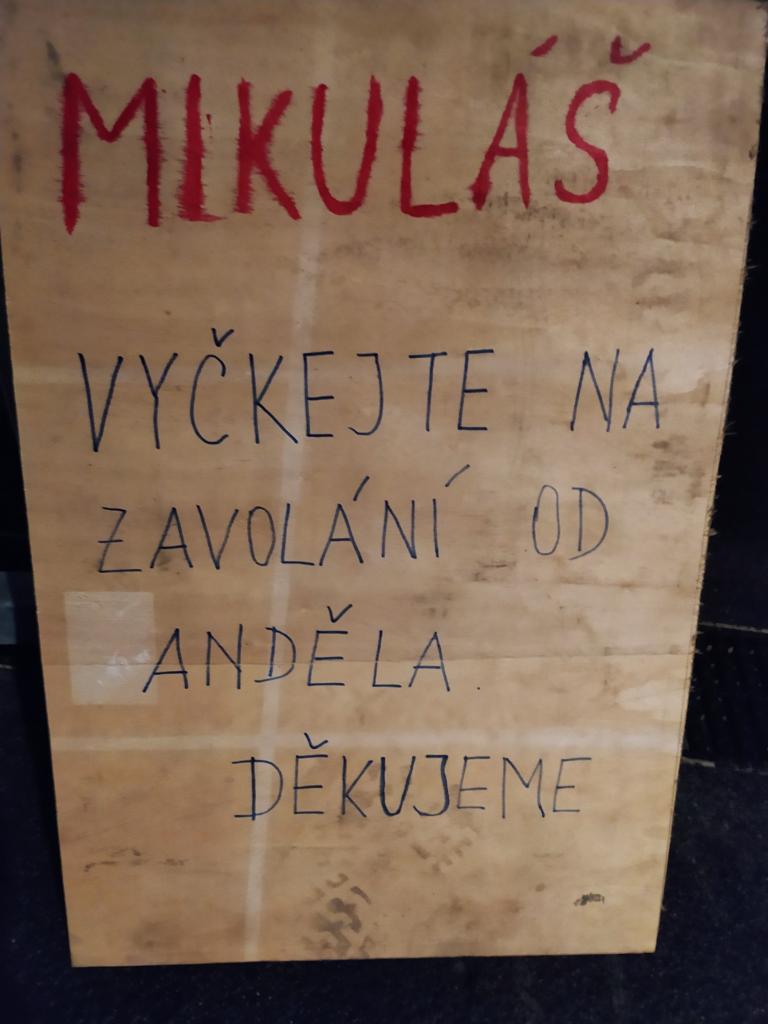 MIKULÁŠ
VYČKEJTE NA
ZAVOLÁNÍ OD
ANDĚLA.
DĚKUJEME